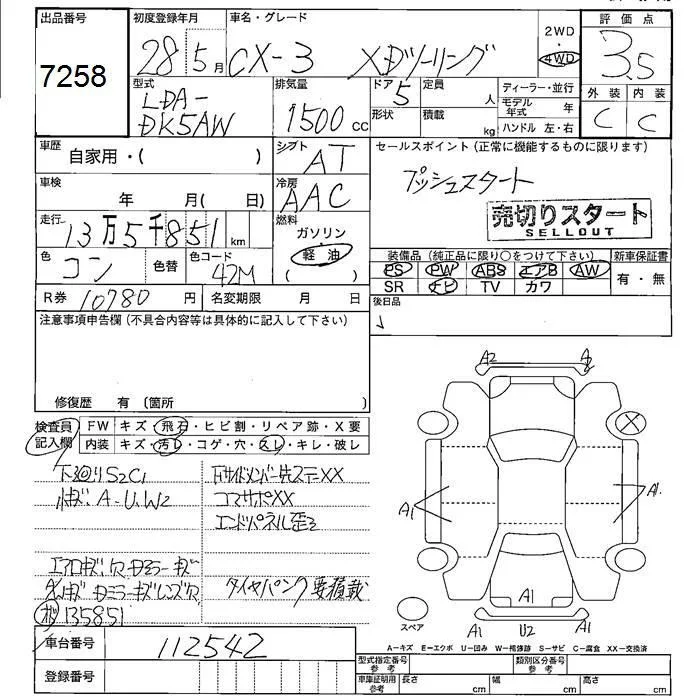 出品番号
7258
初度登録年月
28年5月
車名・グレード
CX-3 XDツーリング
2WD
・
4WD
評価点
3.5
外装 内装
C C
型式
LDA-
DK5AW
排気量
1500 cc
ドア 5
定員 人
形状
積載 kg
ディーラー・並行
モデル年式 年
ハンドル 左・右
車歴
自家用・( )
シフト
AT
セールスポイント(正常に機能するものに限ります)
プッシュスタート
売切りスタート
SELLOUT
車検
年 月( 日)
冷房
AAC
走行
13万5千851 km
燃料
ガソリン
軽油
( )
色
コン
色替
色コード
42M
装備品(純正品に限り○をつけて下さい)
PS PW ABS エアB AW
SR ナビ TV カワ
新車保証書
有・無
R券 10780 円
名変期限 月 日
後日品
注意事項申告欄(不具合内容等は具体的に記入して下さい)
修復歴 有(箇所 )
検査員記入欄
FW キズ・飛石・ヒビ割・リペア跡・X要
内装 キズ・汚レ・コゲ・穴・スレ・キレ・破レ
下廻りS2C1
小キズ、A-U、W2
エアロキズ、穴 ドアミラーキズ
ドアミラーキズ レンズ穴
135851
下サイドメンバー先ステーXX
コアサポXX
エンドパネル歪み
タイヤパンク要積載
A2 A2
A1 A1
A1
A1 U2 A1
スペア
A-キズ E-エクボ U-凹み W-補修跡 S-サビ C-腐食 XX-交換済
車台番号
112542
登録番号
型式指定番号
参考
類別区分番号
参考
車庫証明用
参考
長さ cm
幅 cm
高さ cm